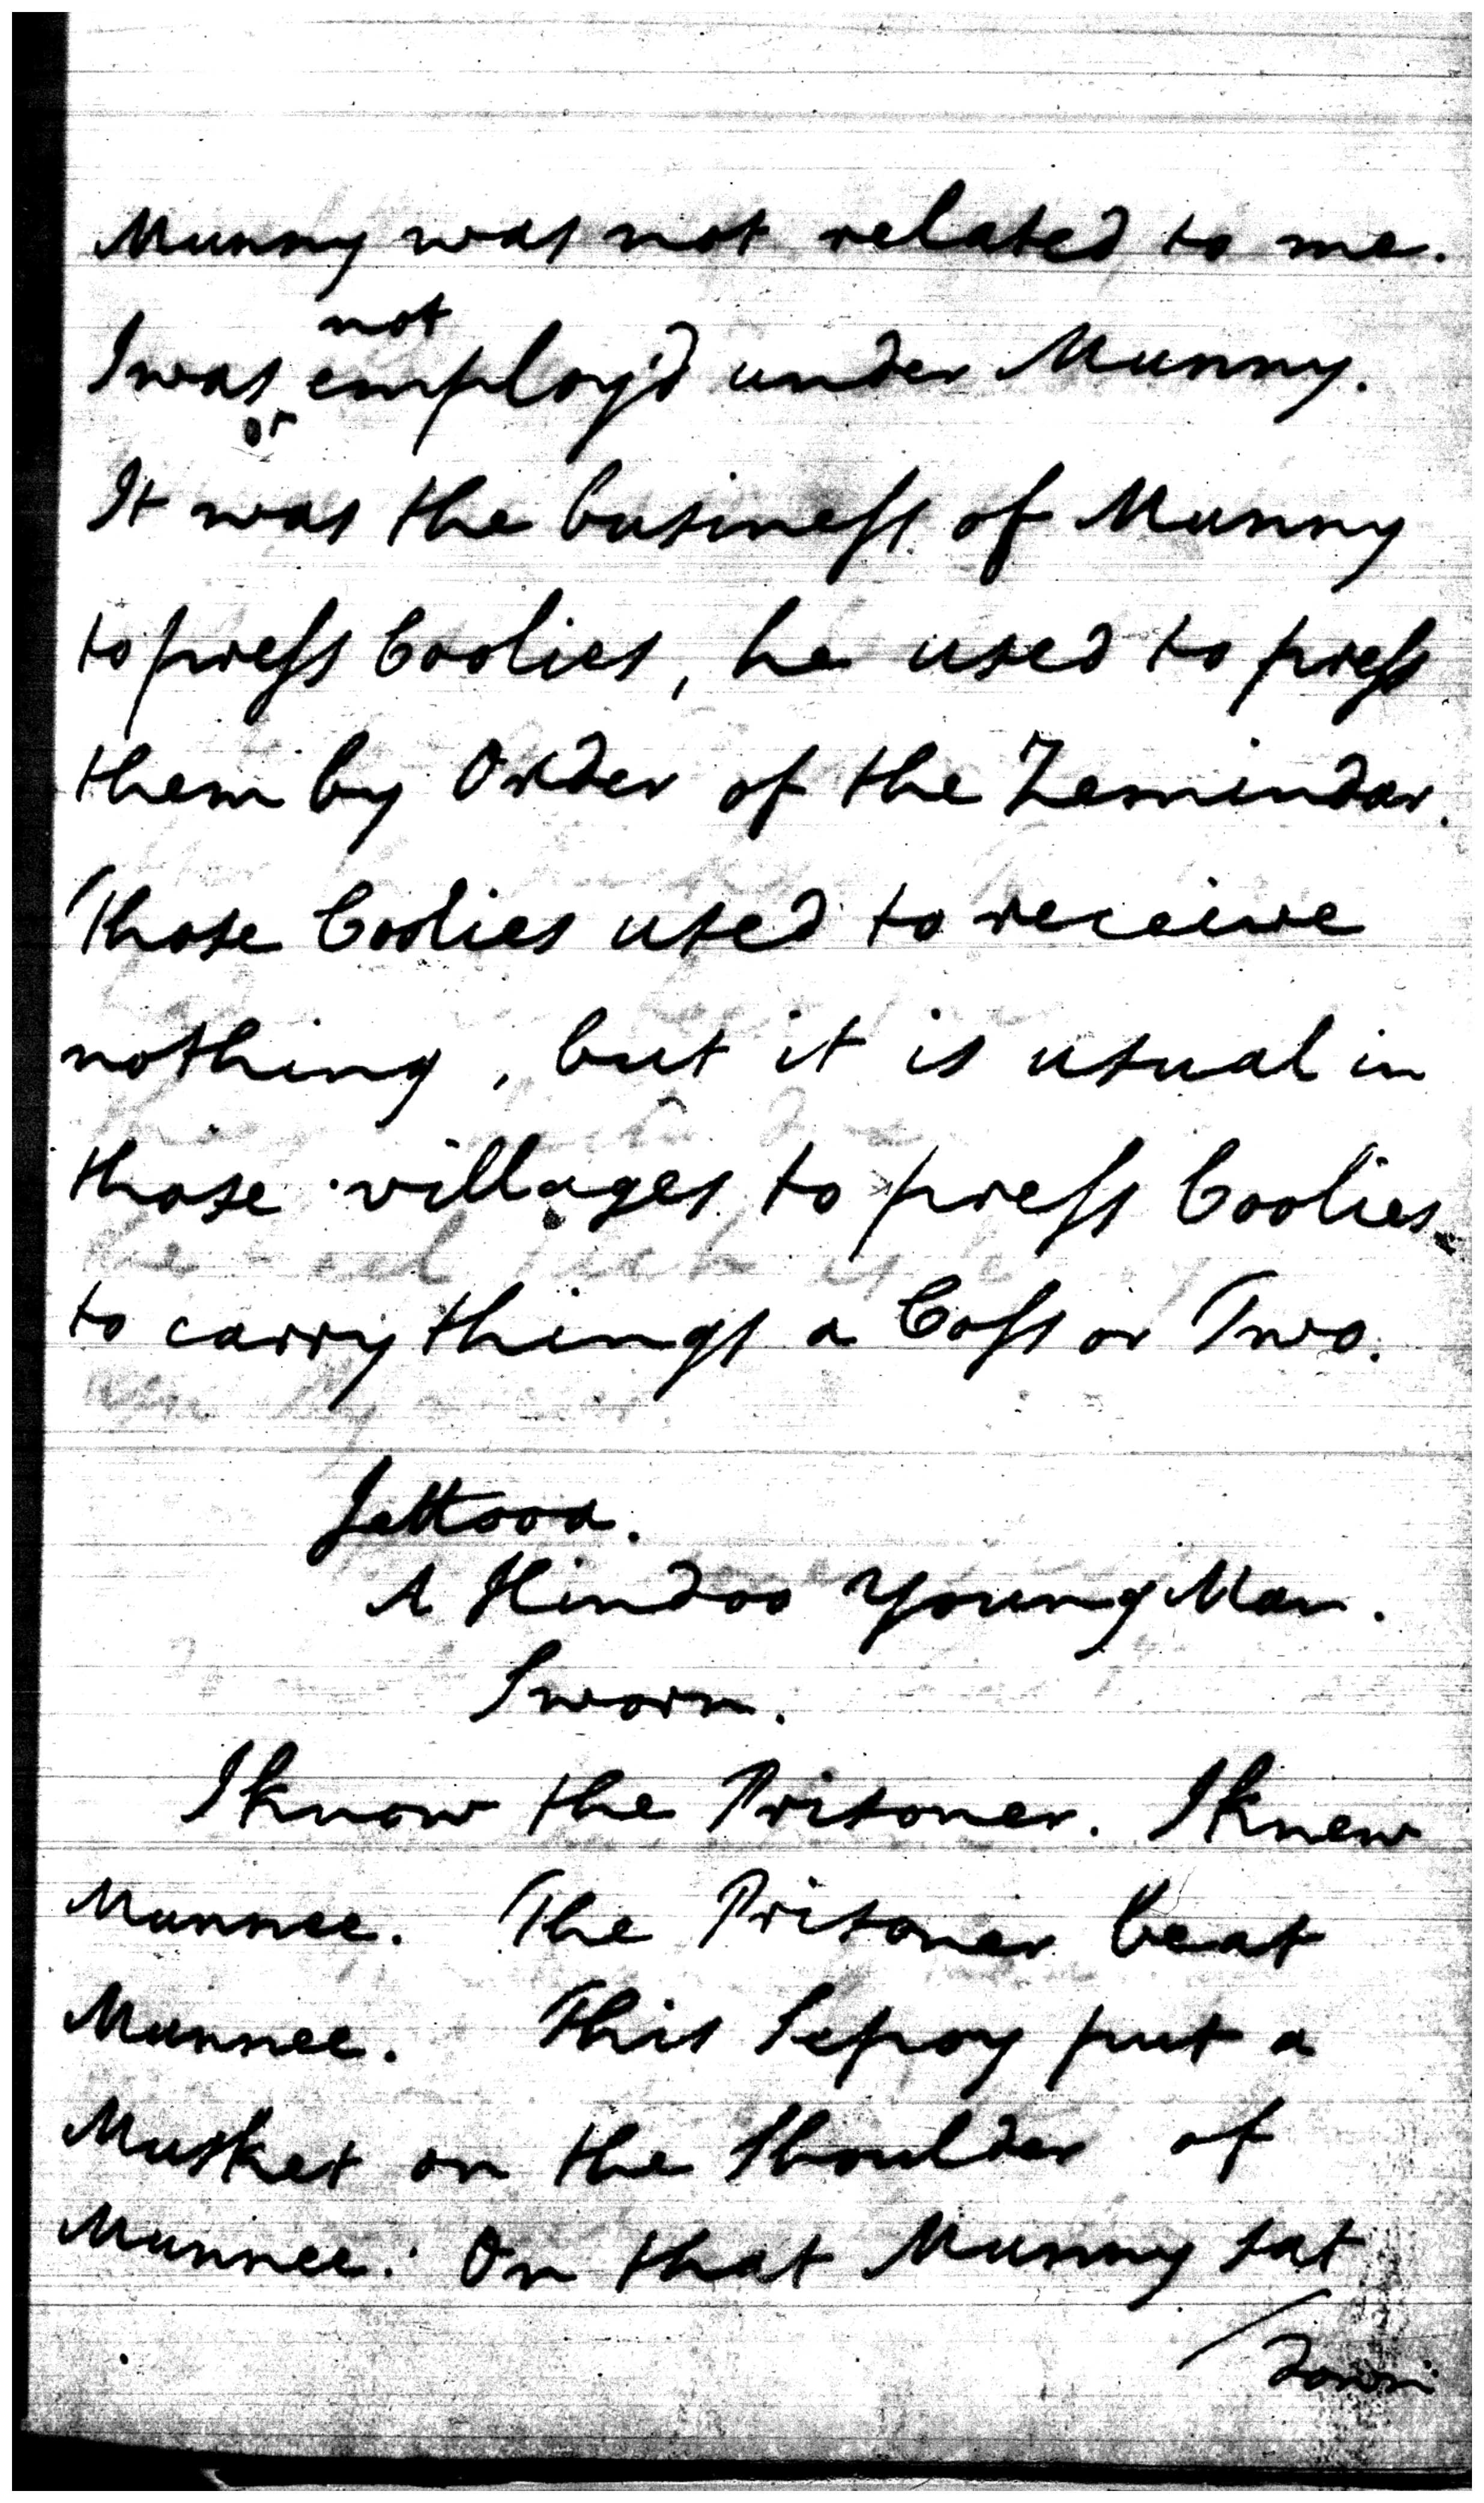 Munny was not related to me.
not
I was employ'd under Munny.
It was the business of Munny
to press Coolies, he used to press
them by Order of the Zemindar.
Those Coolies used to receive
nothing, but it is usual in
those villages to press Coolies
to carry things a Coss or Two.
Jettooa.
A Hindoo young Man.
Sworn.
I know the Prisoner. I knew
Munnee. The Prisoner beat
Munnee. This Sepoy put a
Musket on the Shoulder of
Munnee. On that Munny sat
down